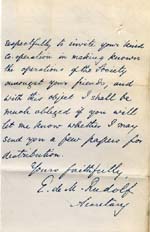 respectfully to invite your kind
co-operation in making known
the operations of the Society
amongst your friends, and
with this object I shall be
much obliged if you will
let me know whether I may
send you a few papers for
distribution.
Yours faithfully
E. de M. Rudolf
Secretary